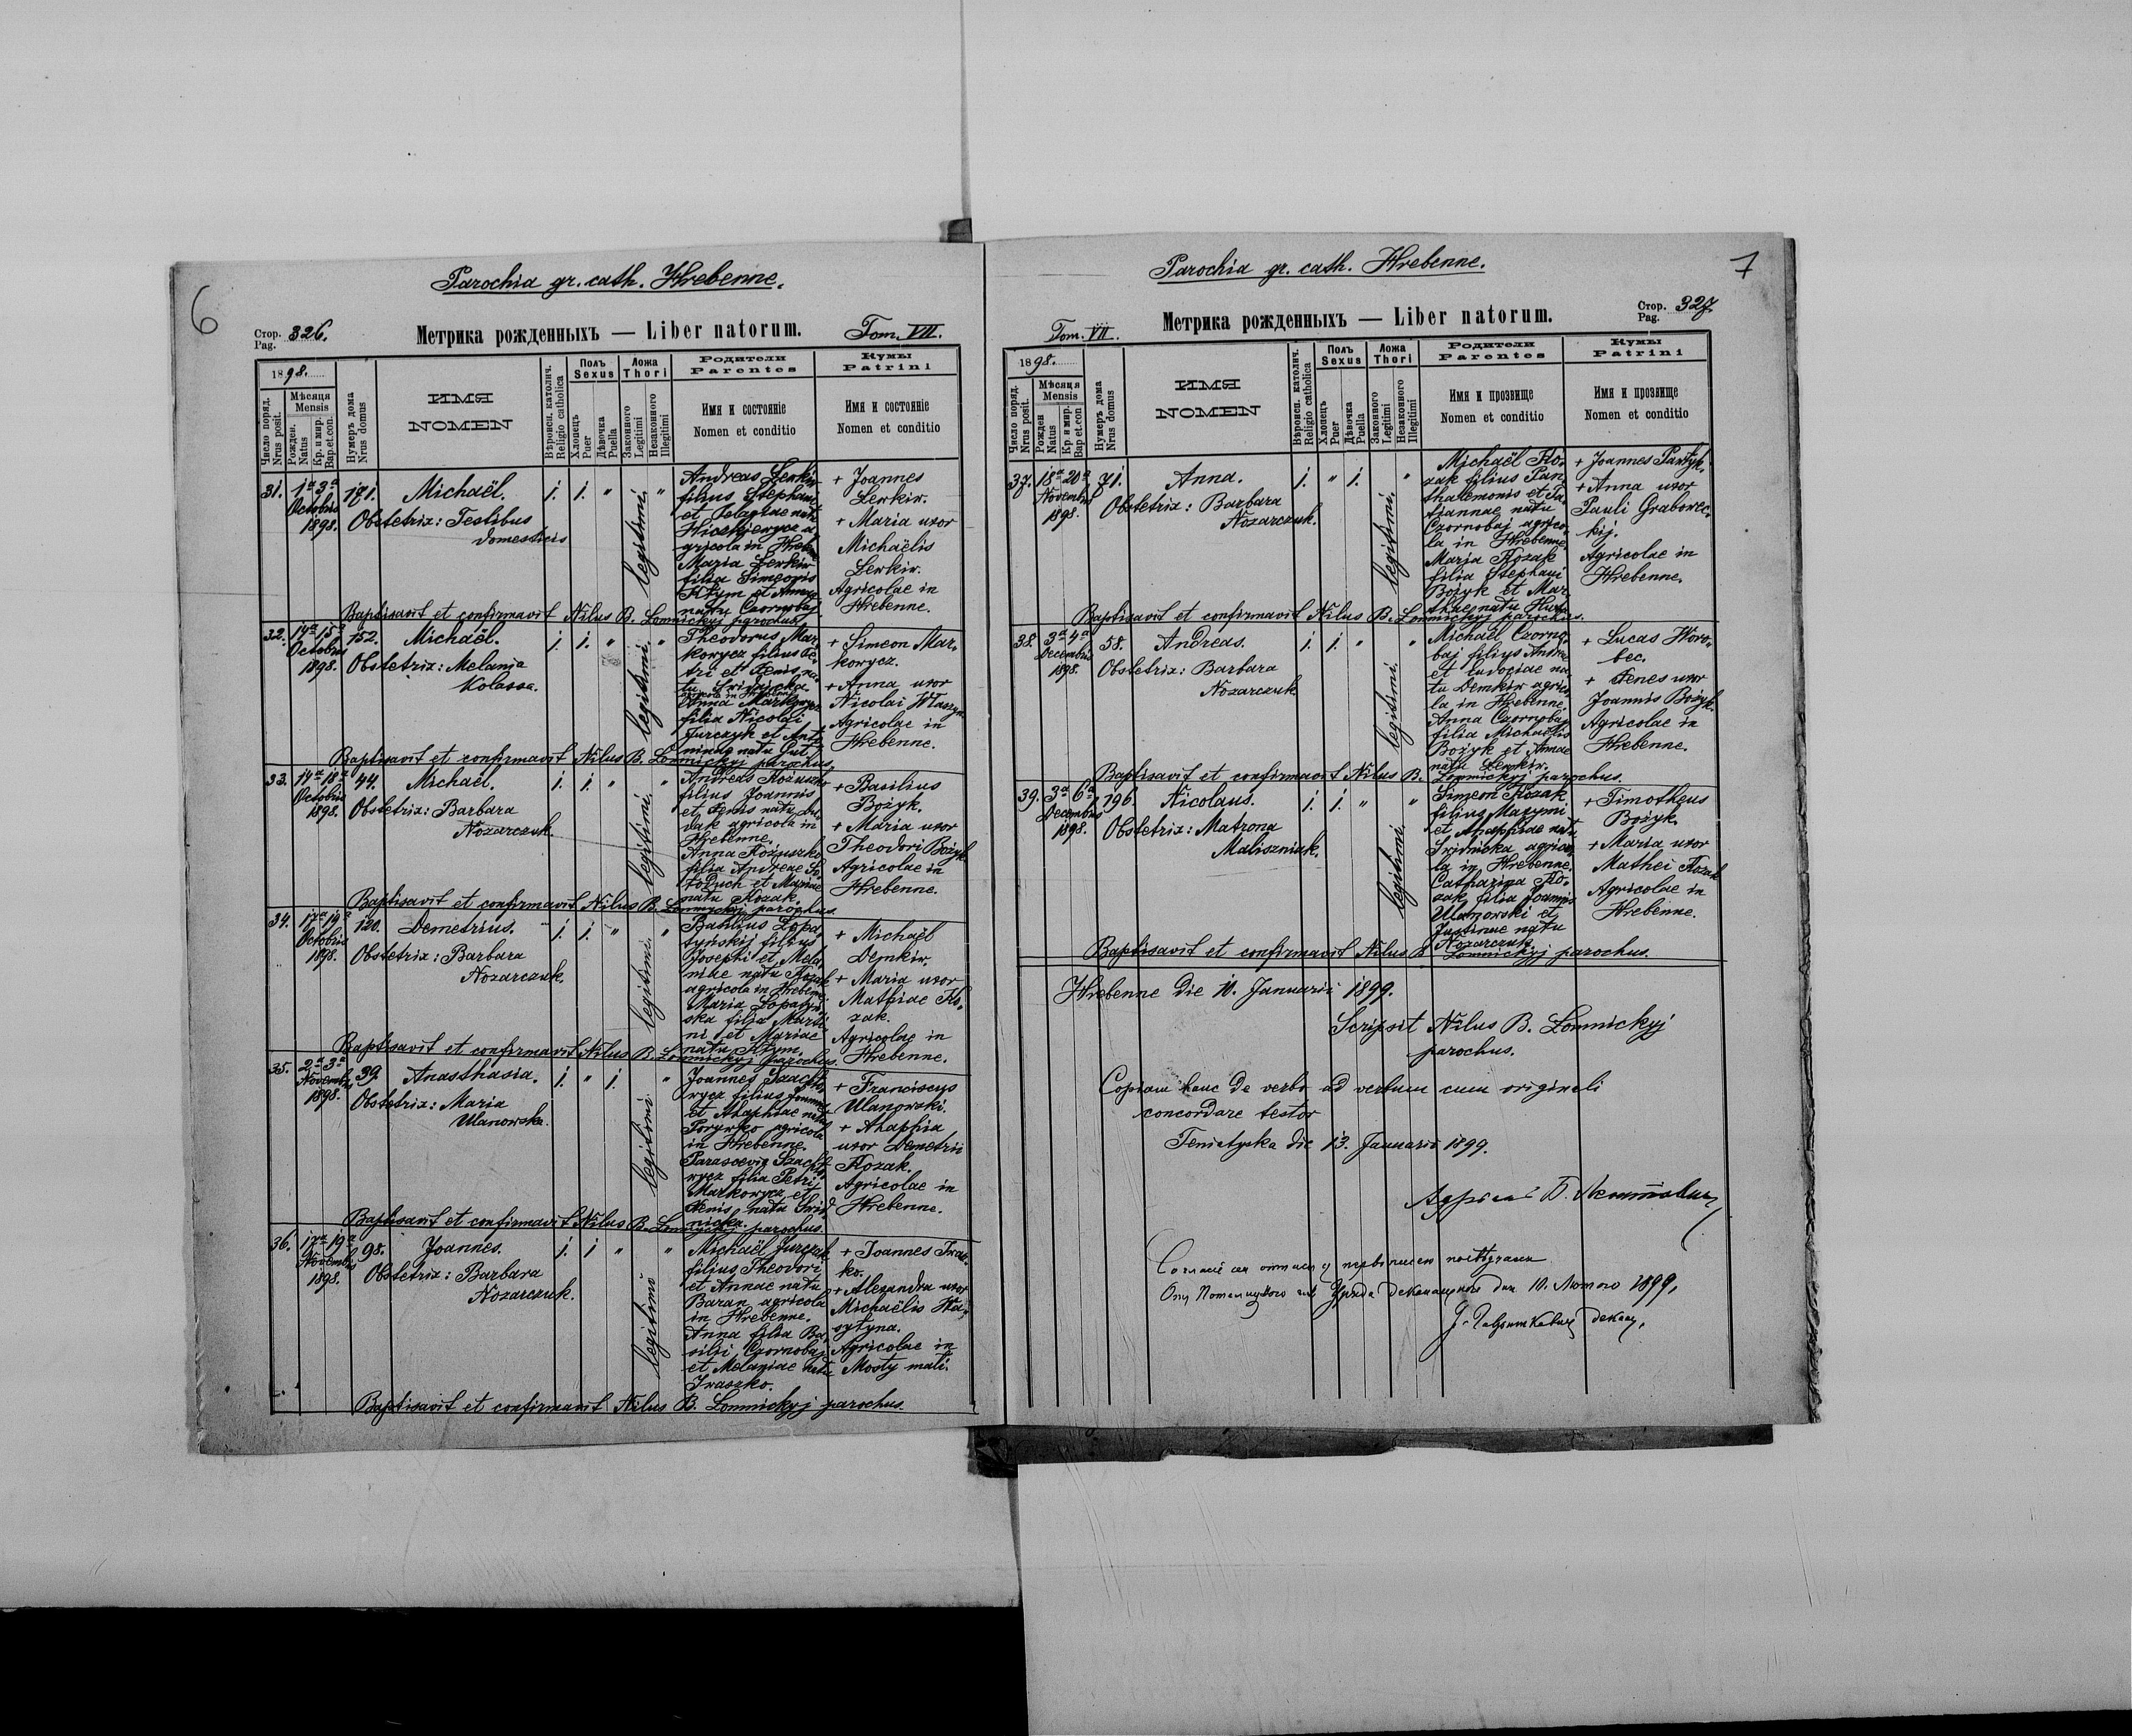 6
Parochia gr. cath. Hrebenne.
Стор. Pag. 326.
Метрика рожденныхъ — Liber natorum.
Tom. VII.
1898.
Число поряд. Nrus posit.
Мѣсяця Mensis
Рожден. Natus
Кр. и мир. Bap. et con.
Нумеръ дома Nrus domus
ИМЯ
NOMEN
Вѣроисп. католич. Religio catholica
Полъ Sexus
Хлопецъ Puer
Дѣвочка Puella
Ложа Thori
Законного Legitimi
Незаконного Illegitimi
Родители Parentes
Имя и состояніе
Nomen et conditio
Кумы Patrini
Имя и состояніе
Nomen et conditio
31. 1a 3a Octobris 1898. 191. Michaël. 1. 1. " legitimi. "
Obstetrix: Testibus
domesticis
Andreas Lewkiw
filius Stephani
et Pelagiae natu
agricola in Hrebenne
Maria Lewkiw
filia Simeonis
Hrym et Annae
natu Czornobaj
+ Joannes
Lewkiw.
+ Maria uxor
Michaëlis
Lewkiw.
Agricolae in
Hrebenne.
Baptisavit et confirmavit Nilus B. Lomnickyj parochus.
32. 14a 15a Octobris 1898. 152. Michaël. 1. 1. " legitimi. "
Obstetrix: Melania
Kolassa.
Theodorus Mar-
kowycz filius Pe-
tri et Fenis na-
tu Sridnicka
agricola in Hrebenne
Anna Markowycz
filia Nicolai
Jurczyk et Anto-
ninae natu Gut
+ Simeon Mar-
kowycz.
+ Anna uxor
Nicolai Wlaszyn
Agricolae in
Hrebenne.
Baptisavit et confirmavit Nilus B. Lomnickyj parochus.
33. 17a 18a Octobris 1898. 44. Michaël. 1. 1. " legitimi. "
Obstetrix: Barbara
Nozarczuk.
Andreas Kożuszko
filius Joannis
et Fenis natu
agricola in
Hrebenne.
Anna Kożuszko
filia Andreae
et Mariae
natu Kozak.
+ Basilius
Bożyk.
+ Maria uxor
Theodori Bożyk
Agricolae in
Hrebenne.
Baptisavit et confirmavit Nilus B. Lomnickyj parochus.
34. 17a 19a Octobris 1898. 120. Demetrius. 1. 1. " legitimi. "
Obstetrix: Barbara
Nozarczuk.
Basilius Lopa-
tyńskij filius
Josephi et Mela-
niae natu Kozak
agricola in Hrebenne.
Maria Lopatyń-
ska filia Marti-
ni et Mariae
natu Hrym.
+ Michaël
Demkiw.
+ Maria uxor
Mathiae Ko-
zak.
Agricolae in
Hrebenne.
Baptisavit et confirmavit Nilus B. Lomnickyj parochus.
35. 2a 3a Novembris 1898. 39. Anasthasia. 1. " 1. legitimi. "
Obstetrix: Maria
Ulanowska.
Joannes Szachno-
wycz filius Joannis
et Ahaphiae natu
Torywko agricola
in Hrebenne.
Parascevia Szachno-
wycz filia Petri
Markowycz et
Fenis natu Srid-
nicka.
+ Franciscus
Ulanowski.
+ Ahaphia
uxor Demetrii
Kozak.
Agricolae in
Hrebenne.
Baptisavit et confirmavit Nilus B. Lomnickyj parochus.
36. 17a 19a Novembris 1898. 98. Joannes. 1. 1 " legitimi "
Obstetrix: Barbara
Nozarczuk.
Michaël Jurczak
filius Theodori
et Annae natu
Baran agricola
in Hrebenne.
Anna filia Ba-
silii Czornobaj
et Melaniae natu
Iwaszko.
+ Joannes Iwasz-
ko.
+ Alexandra uxor
Michaëlis
Agricolae in
Mosty mali.
Baptisavit et confirmavit Nilus B. Lomnickyj parochus.
7
Parochia gr. cath. Hrebenne.
Tom. VII.
Метрика рожденныхъ — Liber natorum.
Стор. Pag. 327.
1898.
Число поряд. Nrus posit.
Мѣсяця Mensis
Рожден Natus
Кр. и мир. Bap et con
Нумеръ дома Nrus domus
ИМЯ
NOMEN
Вѣроисп. католич. Religio catholica
Полъ Sexus
Хлопецъ Puer
Дѣвочка Puella
Ложа Thori
Законного Legitimi
Незаконного Illegitimi
Родители Parentes
Имя и прозвище
Nomen et conditio
Кумы Patrini
Имя и прозвище
Nomen et conditio
37. 18a 20a Novembris 1898. 71. Anna. 1. " 1. legitimi. "
Obstetrix: Barbara
Nozarczuk.
Michaël Ko-
zak filius Pan-
thalemonis et Ta-
tiannae natu
Czornobaj agrico-
la in Hrebenne.
Maria Kozak
filia Stephani
Bożyk et Mar-
thae natu
+ Joannes Pastyk.
+ Anna uxor
Pauli Grabowec-
kij.
Agricolae in
Hrebenne.
Baptisavit et confirmavit Nilus B. Lomnickyj parochus.
38. 3a 4a Decembris 1898. 58. Andreas. 1. 1. " legitimi. "
Obstetrix: Barbara
Nozarczuk
Michaël Czorno-
baj filius Andreae
et Eudociae na-
tu Demkiw agrico-
la in Hrebenne.
Anna Czornobaj
filia Michaëlis
Bożyk et Annae
natu Lewkiw.
+ Lucas Horo-
bec.
+ Fenes uxor
Joannis Bożyk.
Agricolae in
Hrebenne.
Baptisavit et confirmavit Nilus B. Lomnickyj parochus.
39. 3a 6a Decembris 1898. 196. Nicolaus. 1. 1. " legitimi. "
Obstetrix: Matrona
Maliszniak.
Simeon Kozak
filius Maxymi
et Ahaphiae natu
Sridnicka agrico-
la in Hrebenne.
Catharina Ko-
zak filia Joannis
Ulanowski et
Justinae natu
Nozarczuk.
+ Timotheus
Bożyk.
+ Maria uxor
Mathei Kozak
Agricolae in
Hrebenne.
Baptisavit et confirmavit Nilus B Lomnickyj parochus.
Hrebenne die 10. Januarii 1899.
Scripsit Nilus B. Lomnickyj
parochus.
Copiam hanc de verbo ad verbum cum originali
concordare testor
Teniatyska die 13. Januarii 1899.
дня 10. Лютого 1899.
декан.